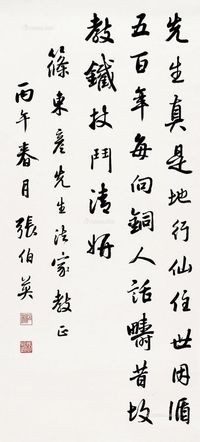 先生真是地行仙住世因循
五百年每向銅人話疇昔故
教鐵杖鬥清妍
篠東彦先生法家教正
丙午春月張伯英